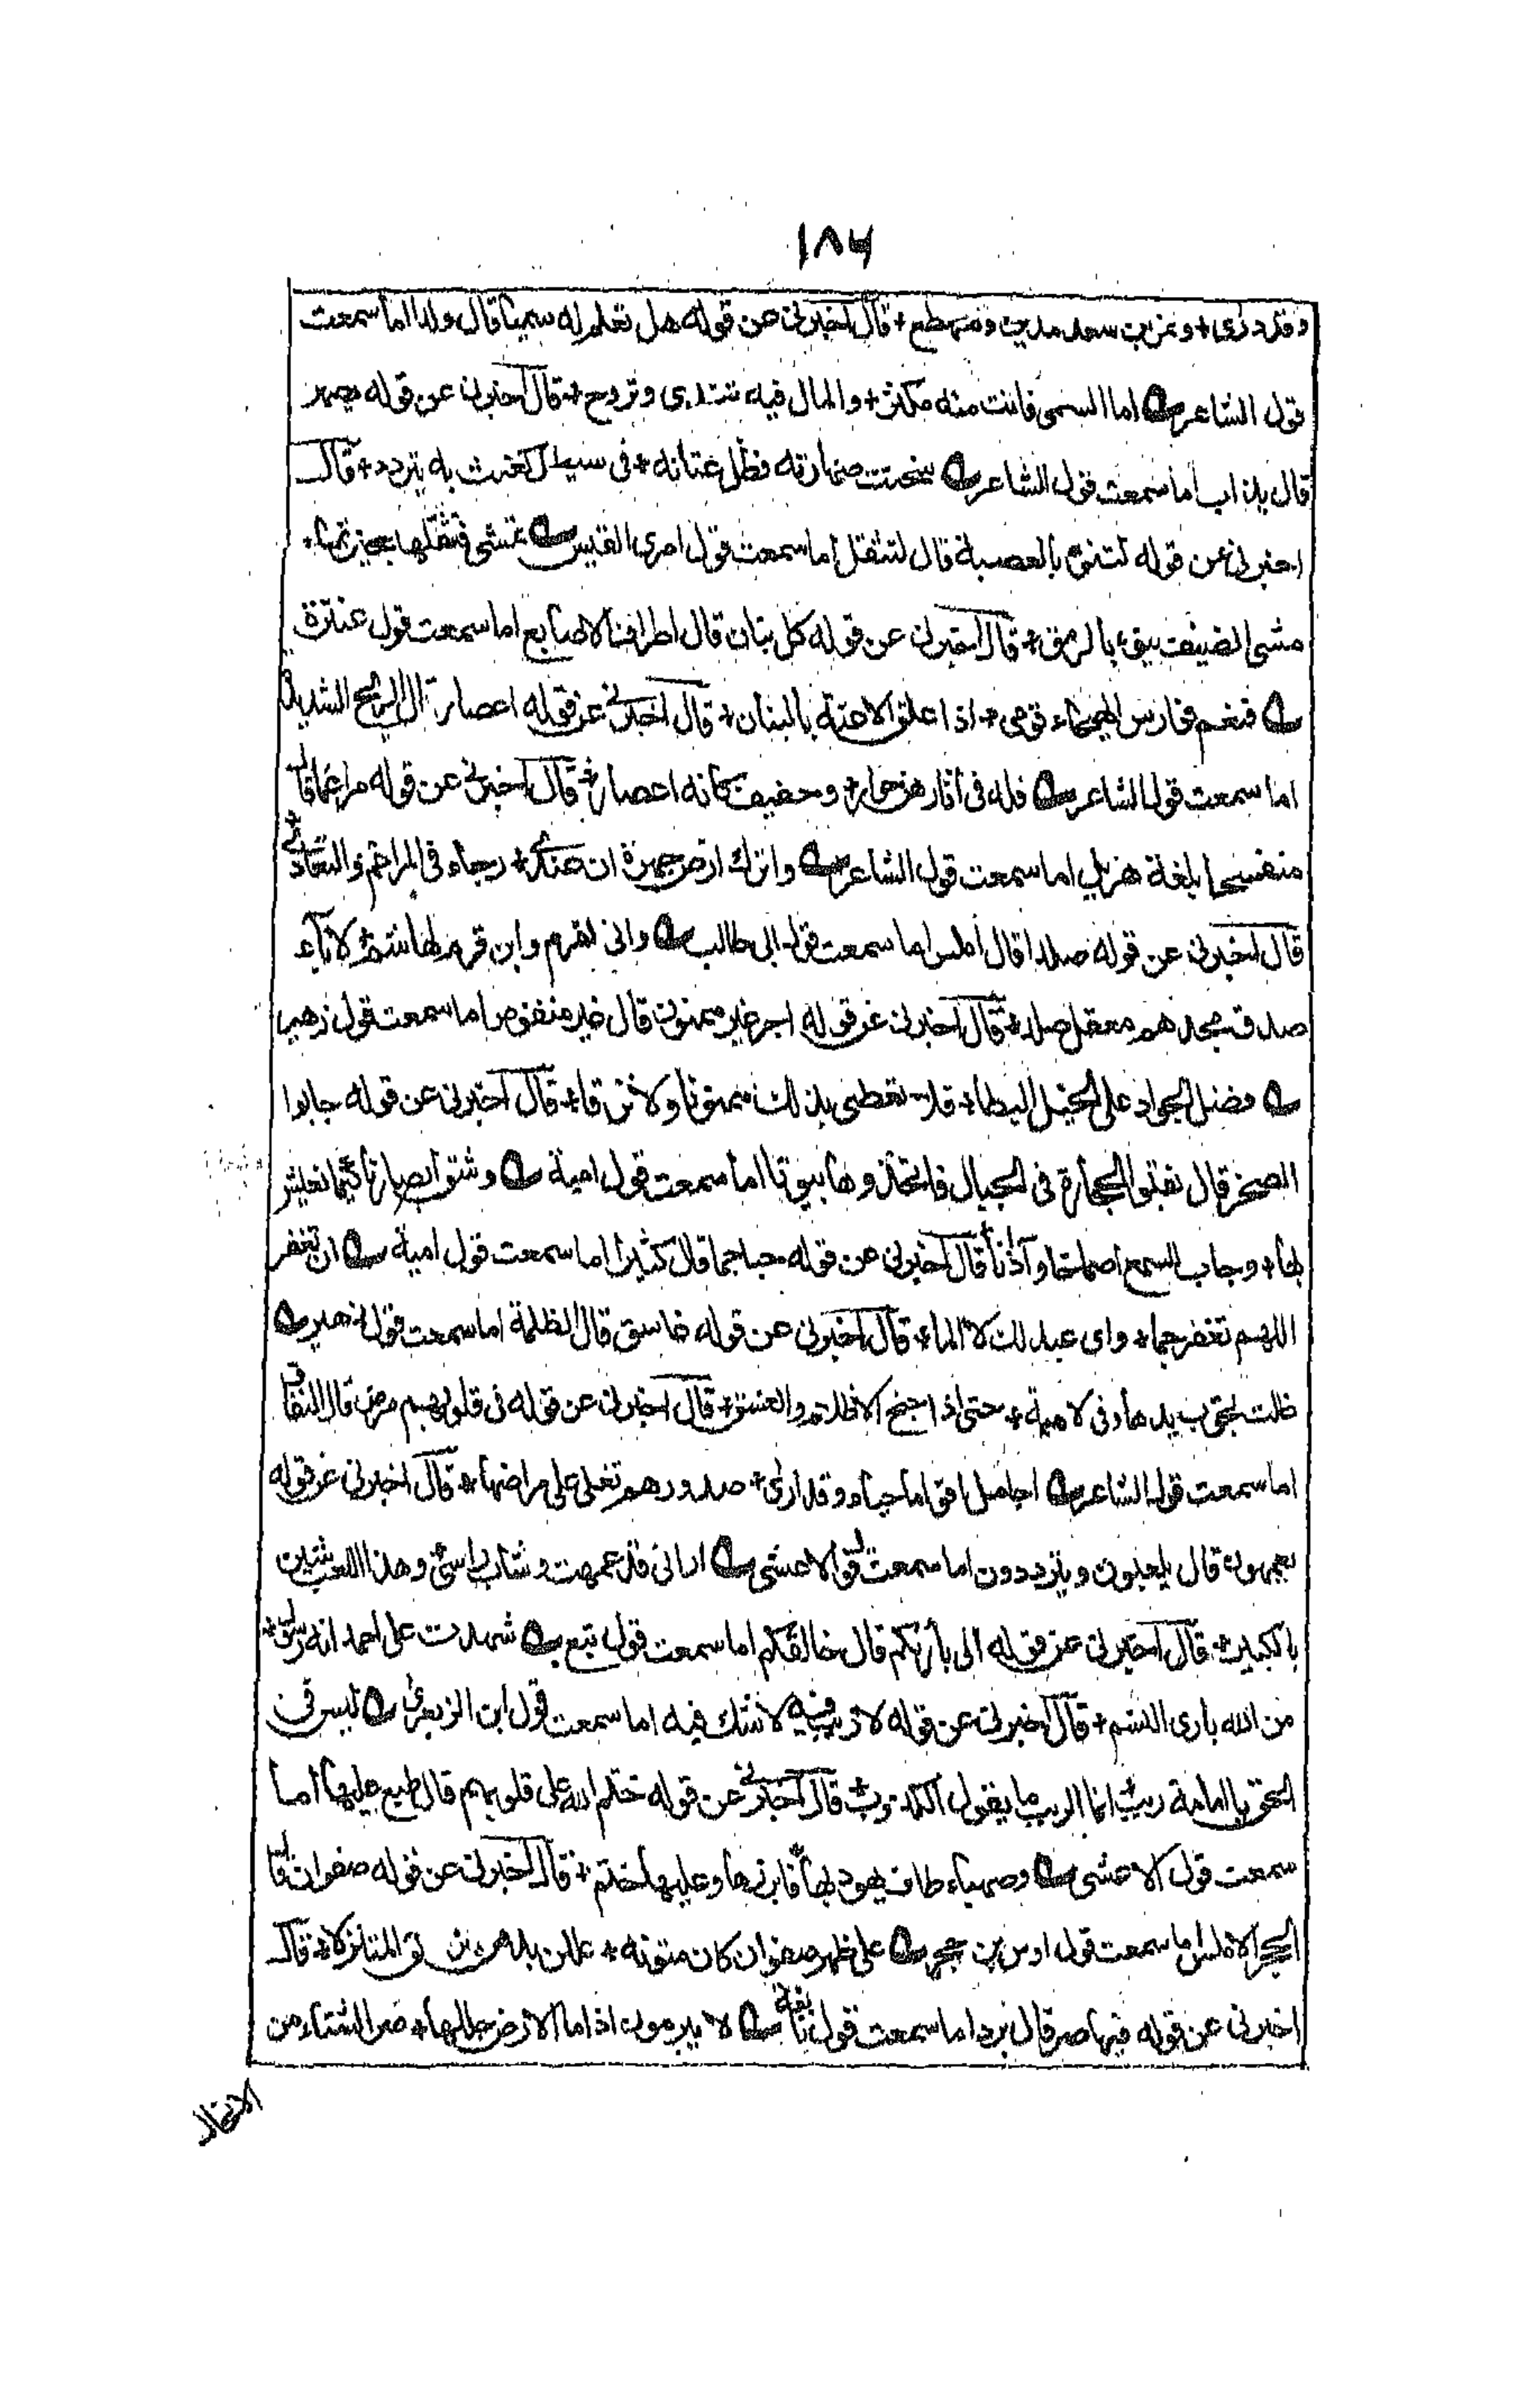 ١٨٦
وقد درى + ونمر بن سعد مدين ومهطع + قال اخبرنى عن قوله هل تعلم له سميا قال ولدا اما سمعت
قول الشاعر اما السمى فانت منه مكثر + والمال فيه تغتدى وتروح + قال اخبرنى عن قوله يصهر
قال يذاب اما سمعت قول الشاعر سخنت صهارته فظل عثانه + فى سيطل كفيت به يتردد + قال
اخبرنى عن قوله لتنوء بالعصبة قال لتثقل اما سمعت قول امرى القيس تمشى فتثقلها عجيزتها +
مشى الضعيف ينوء بالوسق + قال اخبرنى عن قوله كل بنان قال اطراف الاصابع اما سمعت قول عنترة
فنعم فوارس الهيجاء قومى + اذا علق الاعنه بالبنان + قال اخبرنى عن قوله اعصار قال الريح الشديدة
اما سمعت قول الشاعر فله فى آثارهن خوار + وحفيف كانه اعصار + قال اخبرنى عن قوله مراغما قال
منفسحا بلغة هذيل اما سمعت قول الشاعر واترك ارض جهرة ان عندى + رجاء فى المراغم والتعادى +
قال اخبرنى عن قوله صلدا قال املس اما سمعت قول ابى طالب وانى لقرم وابن قرم لهاشم + لاباء
صدق مجدهم معقل صلد + قال اخبرنى عن قوله اجر غير ممنون قال غير منقوص اما سمعت قول زهير
فضل الجواد على الخيل البطاء + فلا يعطى بذلك ممنونا ولا نزقا + قال اخبرنى عن قوله جابوا
الصخر قال نقبوا الحجارة فى الجبال فاتخذوها بيوتا اما سمعت قول امية وشق ابصارنا كيما نعيش
بها + وجاب للسمع اصماخا وآذانا + قال اخبرنى عن قوله حبا جما قال كثيرا اما سمعت قول امية ان تغفر
اللهم تغفر جما + واى عبد لك لا الما + قال اخبرنى عن قوله غاسق قال الظلمة اما سمعت قول زهير
ظلت تجوب يداها وفى لاهية + حتى اذا جنح الاظلام والغسق + قال اخبرنى عن قوله فى قلوبهم مرض قال النفاق
اما سمعت قول الشاعر اجامل اقواما حياء وقد ارى + صدورهم تغلى على مراضها + قال اخبرنى عن قوله
يعمهون قال يلعبون ويترددون اما سمعت قول الاعشى ارانى قد عمهت وشاب راسى + وهذا اللعب شين
بالكبير + قال اخبرنى عن قوله الى بارئكم قال خالقكم اما سمعت قول تبع شهدت على احمد انه رسول +
من الله بارى النسم + قال اخبرنى عن قوله لا ريب فيه لا شك فيه اما سمعت قول ابن الزبعرى ليس فى
الحق يا امامة ريب + انما الريب ما يقول الكذوب + قال اخبرنى عن قوله ختم الله على قلوبهم قال طبع عليها اما
سمعت قول الاعشى وصهباء طاف يهود بها + فابرزها وعليها ختم + قال اخبرنى عن قوله صفوان قال
الحجر الاملس اما سمعت قول اوس بن حجر على ظهر صفوان كان متونه + عللن بدهن يزلق المتنزلا + قال
اخبرنى عن قوله فيها صر قال برد اما سمعت قول نابغة لا يبرمون اذا ما الارض جللها + صر الشتاء من
الامحال